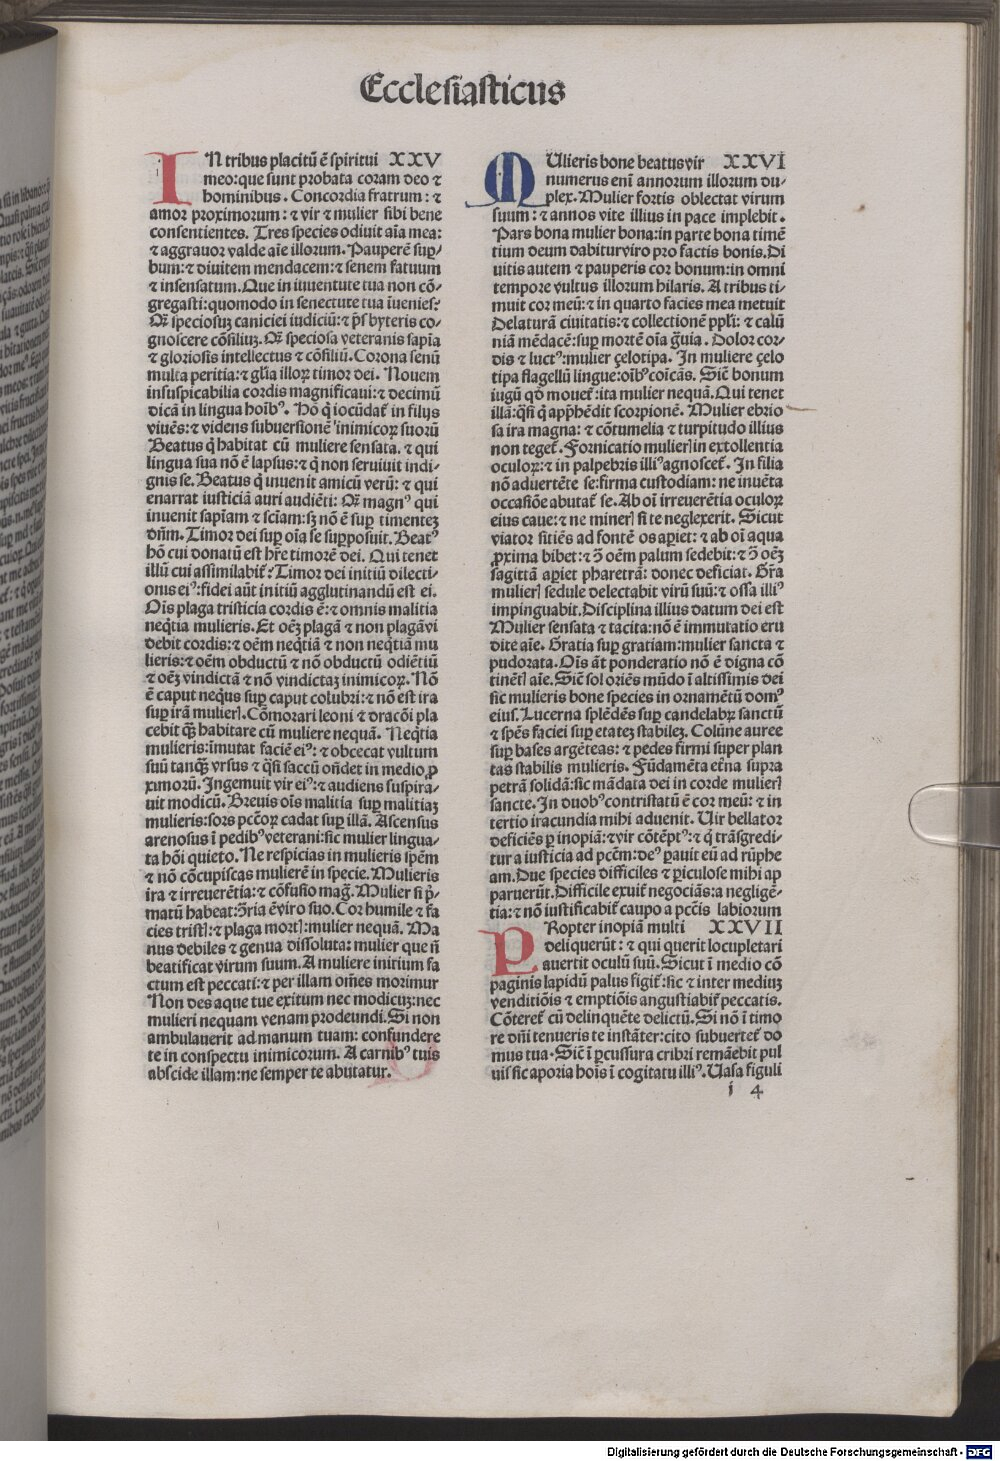 Ecclesiasticus
IN tribus placitū ē spiritui XXV
meo:que sunt probata coram deo ⁊
hominibus. Concordia fratrum: ⁊
amor proximorum: ⁊ vir ⁊ mulier sibi bene
consentientes. Tres species odiuit aīa mea:
⁊ aggrauor valde aīe illorum. Pauperē sup̄-
bum:⁊ diuitem mendacem:⁊ senem fatuum
⁊ insensatum. Que in iuuentute tua non cō-
gregasti:quomodo in senectute tua īuenies?
Qꝫ speciosuꝫ caniciei iudiciū:⁊ p̄sbyteris co-
gnoscere cōsiliuꝫ. Qꝫ speciosa veteranis sapīa
⁊ gloriosis intellectus ⁊ cōsiliū. Corona senū
multa peritia:⁊ gl̄ia illoꝝ timor dei. Nouem
insuspicabilia cordis magnificaui:⁊ decimū
dicā in lingua hoīb⁹. Hō q̄ iocūdat᷑ in filijs
viuēs:⁊ videns subuersionē inimicoꝝ suorū
Beatus q̄ habitat cū muliere sensata. ⁊ qui
lingua sua nō ē lapsus:⁊ q̄ non seruiuit indi-
gnis se. Beatus q̄ inuenit amicū verū: ⁊ qui
enarrat iusticiā auri audiēti: Qꝫ magn⁹ qui
inuenit sapīam ⁊ sciam:sꝫ nō ē sup̄ timenteꝫ
dn̄m. Timor dei sup̄ oīa se sup̄posuit. Beat⁹
hō cui donatū est hr̄e timorē dei. Qui tenet
illū cui assimilabit᷑? Timor dei initiū dilecti-
onis ei⁹:fidei aūt initiū agglutinandū est ei.
Oīs plaga tristicia cordis ē:⁊ omnis malitia
neq̄tia mulieris. Et oēꝫ plagā ⁊ non plagā vi
debit cordis:⁊ oēm neq̄tiā ⁊ non neq̄tiā mu
lieris:⁊ oēm obductū ⁊ nō obductū odiētiū
⁊ oēꝫ vindictā ⁊ nō vindictaꝫ inimicoꝝ. Nō
ē caput neq̄us sup̄ caput colubri:⁊ nō est ira
sup̄ irā mulierꝭ. Cōmorari leoni ⁊ dracōi pla
cebit qꝫ habitare cū muliere nequā. Neq̄tia
mulieris:īmutat faciē ei⁹: ⁊ obcecat vultum
suū tanqꝫ vrsus ⁊ q̄si saccū on̄det in medio ꝓ
ximorū. Ingemuit vir ei⁹:⁊ audiens suspira-
uit modicū. Breuis oīs malitia sup̄ malitiaꝫ
mulieris:sors pctōꝝ cadat sup̄ illā. Ascensus
arenosus ī pedib⁹ veterani:sic mulier lingua-
ta hōi quieto. Ne respicias in mulieris spēm
⁊ nō cōcupiscas mulierē in specie. Mulieris
ira ⁊ irreuerētia:⁊ cōfusio maḡ. Mulier si p̄-
matū habeat:ꝯria ē viro suo. Cor humile ⁊ fa
cies tristꝭ:⁊ plaga mortꝭ:mulier nequā. Ma
nus debiles ⁊ genua dissoluta: mulier que n̄
beatificat virum suum. A muliere initium fa
ctum est peccati:⁊ per illam om̄es morimur
Non des aque tue exitum nec modicuꝫ:nec
mulieri nequam venam prodeundi. Si non
ambulauerit ad manum tuam: confundere
te in conspectu inimicorum. A carnib⁹ tuis
abscide illam:ne semper te abutatur.
MUlieris bone beatus vir XXVI
numerus enī annorum illorum du-
plex. Mulier fortis oblectat virum
suum: ⁊ annos vite illius in pace implebit.
Pars bona mulier bona:in parte bona timē
tium deum dabitur viro pro factis bonis. Di
uitis autem ⁊ pauperis cor bonum:in omni
tempore vultus illorum hilaris. A tribus ti-
muit cor meū:⁊ in quarto facies mea metuit
Delaturā ciuitatis:⁊ collectionē ppl̄i: ⁊ calū
niā mēdacē:sup̄ mortē oīa g̃uia. Dolor cor-
dis ⁊ luct⁹:mulier çelotipa. In muliere çelo
tipa flagellū lingue:oīb⁹ coīcās. Sic̄ bonum
iugū qđ mouet᷑:ita mulier nequā. Qui tenet
illā:q̄si q̄ app̄hēdit scorpionē. Mulier ebrio
sa ira magna: ⁊ cōtumelia ⁊ turpitudo illius
non teget᷑. Fornicatio mulierꝭ in extollentia
oculoꝝ:⁊ in palpebris illi⁹ agnoscet᷑. In filia
nō aduertēte se:firma custodiam: ne inuēta
occasiōe abutat᷑ se. Ab oī irreuerētia oculoꝝ
eius caue:⁊ ne mirerꝭ si te neglexerit. Sicut
viator sitiēs ad fontē os aꝑiet: ⁊ ab oī aqua
ꝓxima bibet:⁊ ꝯ oēm palum sedebit:⁊ ꝯ oēꝫ
sagittā aꝑiet pharetrā: donec deficiat. Gr̄a
mulierꝭ sedule delectabit virū suū:⁊ ossa illi⁹
impinguabit. Disciplina illius datum dei est
Mulier sensata ⁊ tacita:nō ē immutatio eru
dite aīe. Gratia sup̄ gratiam:mulier sancta ⁊
pudorata. Oīs āt ponderatio nō ē digna cō
tinētꝭ aīe. Sic̄ sol oriēs mūdo ī altissimis dei
sic mulieris bone species in ornamētū dom⁹
eius. Lucerna splēdēs sup̄ candelabꝝ sanctū
⁊ sp̄es faciei sup̄ etateꝫ stabileꝫ. Colūne auree
sup̄ bases argēteas: ⁊ pedes firmi super plan
tas stabilis mulieris. Fūdamēta et̄na supra
petrā solidā:sic mādata dei in corde mulierꝭ
sancte. In duob⁹ contristatū ē cor meū: ⁊ in
tertio iracundia mihi aduenit. Uir bellator
deficiēs ꝑ inopiā: ⁊ vir cōtēpt⁹: ⁊ q̄ trāsgredi-
tur a iusticia ad pccm̄:de⁹ ꝑauit eū ad rūphe
am. Due species difficiles ⁊ ꝑiculose mihi ap
paruerūt. Difficile exuit᷑ negociās:a negligē-
tia:⁊ nō iustificabit᷑ caupo a pccīs labiorum
PRopter inopiā multi XXVII
deliquerūt: ⁊ qui querit locupletari
auertit oculū suū. Sicut ī medio cō
paginis lapidū palus figit᷑:sic ⁊ inter mediuꝫ
venditiōis ⁊ emptiōis angustiabit᷑ peccatis.
Cōteret᷑ cū delinquēte delictū. Si nō ī timo
re dn̄i tenueris te instāter:cito subuertet᷑ do
mus tua. Sic̄ ī ꝑcussura cribri remāebit pul
uis sic aporia hoīs ī cogitatu illi⁹. Uasa figuli
i 4
Digitalisierung gefördert durch die Deutsche Forschungsgemeinschaft - DFG